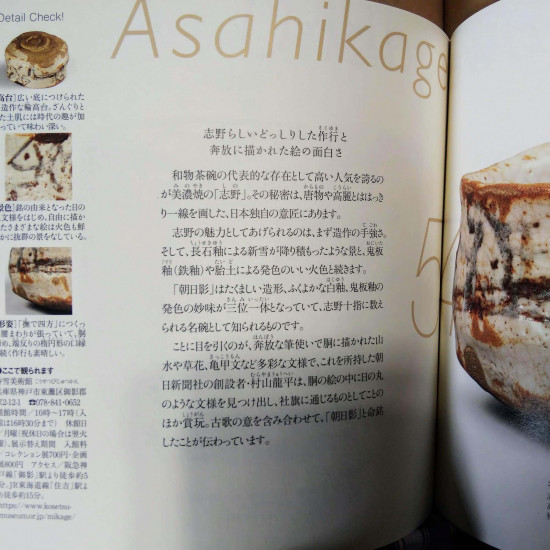 Asahikage
Detail Check!
高台］広い底につけられた
造作な輪高台。ざんぐりと
た土肌には時代の趣が加
っていて味わい深い。
景色］銘の由来となった日の
文様をはじめ、自由に描か
たさまざまな絵は火色も鮮
かに抜群の景をなしている。
形姿］「撫で四方」につくっ
腰まわりが張っていて、胴
め、端反りの楕円形の口縁
続く作行も素晴しい。
ここで観られます
雪美術館
兵庫県神戸市東灘区御影郡
2-12-1 ☎078-841-0652
館時間／10時〜17時（入
は16時30分まで） 休館日
／月曜（祝休日の場合は翌火
曜）、展示替え期間 入館料
／コレクション展700円・企画
展800円 アクセス／阪急神
戸線「御影」駅より徒歩約5
分、JR東海道線「住吉」駅よ
り徒歩約15分。
https://www.kosetsu-
museum.or.jp/mikage/
志野らしいどっしりした作行と
奔放に描かれた絵の面白さ
和物茶碗の代表的な存在として高い人気を誇るの
が美濃焼の「志野」。その秘密は、唐物や高麗とははっき
り一線を画した、日本独自の意匠にあります。
志野の魅力としてあげられるのは、まず造作の手強さ。
そして、長石釉による新雪が降り積もったような景と、鬼板
釉（鉄釉）や胎土による発色のいい火色と続きます。
「朝日影」はたくましい造形、ふくよかな白釉、鬼板釉の
発色の妙味が三位一体となっていて、志野十指に数え
られる名碗として知られるものです。
ことに目を引くのが、奔放な筆使いで胴に描かれた山
水や草花、亀甲文など多彩な文様で、これを所持した朝
日新聞社の創設者・村山龍平は、胴の絵の中に日の丸
のような文様を見つけ出し、社旗に通じるものとしてこの
ほか賞玩。古歌の意を含み合わせて、「朝日影」と命銘
したことが伝わっています。